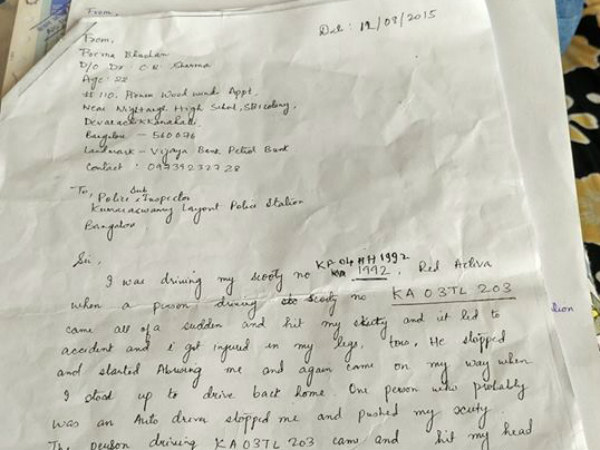 From,
Date: 12/03/2015
From,
D/O Dr. C.R. Sharma
Age: 22
# 110, Wood winds Appt.
Near High School, SBI colony,
Bangalore - 560076
Landmark - Vijaya Bank Petrol Bunk
Contact : 09739232728
To,
Police Sub Inspector
Kumaraswamy Layout Police Station
Bangalore
Sir,
I was driving my scooty no 1992, Red Activa
when a person driving scooty no KA 03TL 203
came all of a sudden and hit my scooty and it led to
accident and i got injured in my legs, He stopped
and started Abusing me and again came on my way when
I stood up to drive back home. One person who probably
was an Auto driver stopped me and pushed my scuty.
The person driving KA 03TL 203 came and hit my head